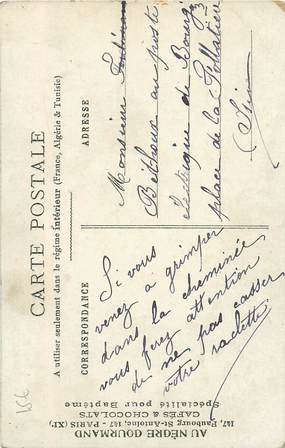 CARTE POSTALE
A utiliser seulement dans le régime intérieur (France, Algérie & Tunisie)
CORRESPONDANCE
ADRESSE
Si vous
venez a grimper
dans la cheminée
vous ferez attention
de ne pas casser
votre raclette
Monsieur
au poste
électrique de Bourg
place de la
Ain
AU NÈGRE GOURMAND
147, Faubourg St-Antoine, 147 - PARIS (XIe)
CAFÉS & CHOCOLATS
Spécialité pour Baptême